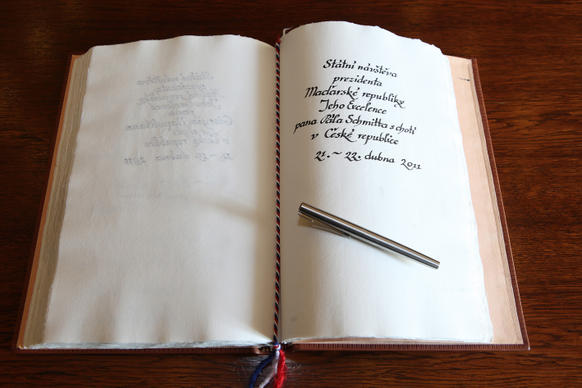 Státní návštěva
prezidenta
Maďarské republiky
Jeho Excelence
pana Pála Schmitta s chotí
v České republice
21. ~ 22. dubna 2011